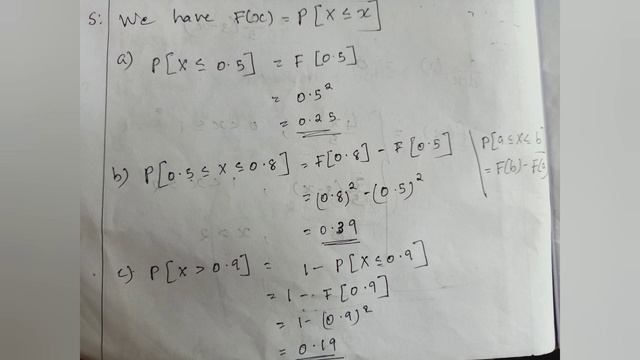 5: We have F(x) = P[X ≤ x]
a) P[X ≤ 0.5] = F[0.5]
= 0.5²
= 0.25
b) P[0.5 ≤ X ≤ 0.8] = F[0.8] - F[0.5]
= (0.8)² - (0.5)²
= 0.39
P[a ≤ X ≤ b
= F(b) - F(a
c) P[X > 0.9] = 1 - P[X ≤ 0.9]
= 1 - F[0.9]
= 1 - (0.9)²
= 0.19